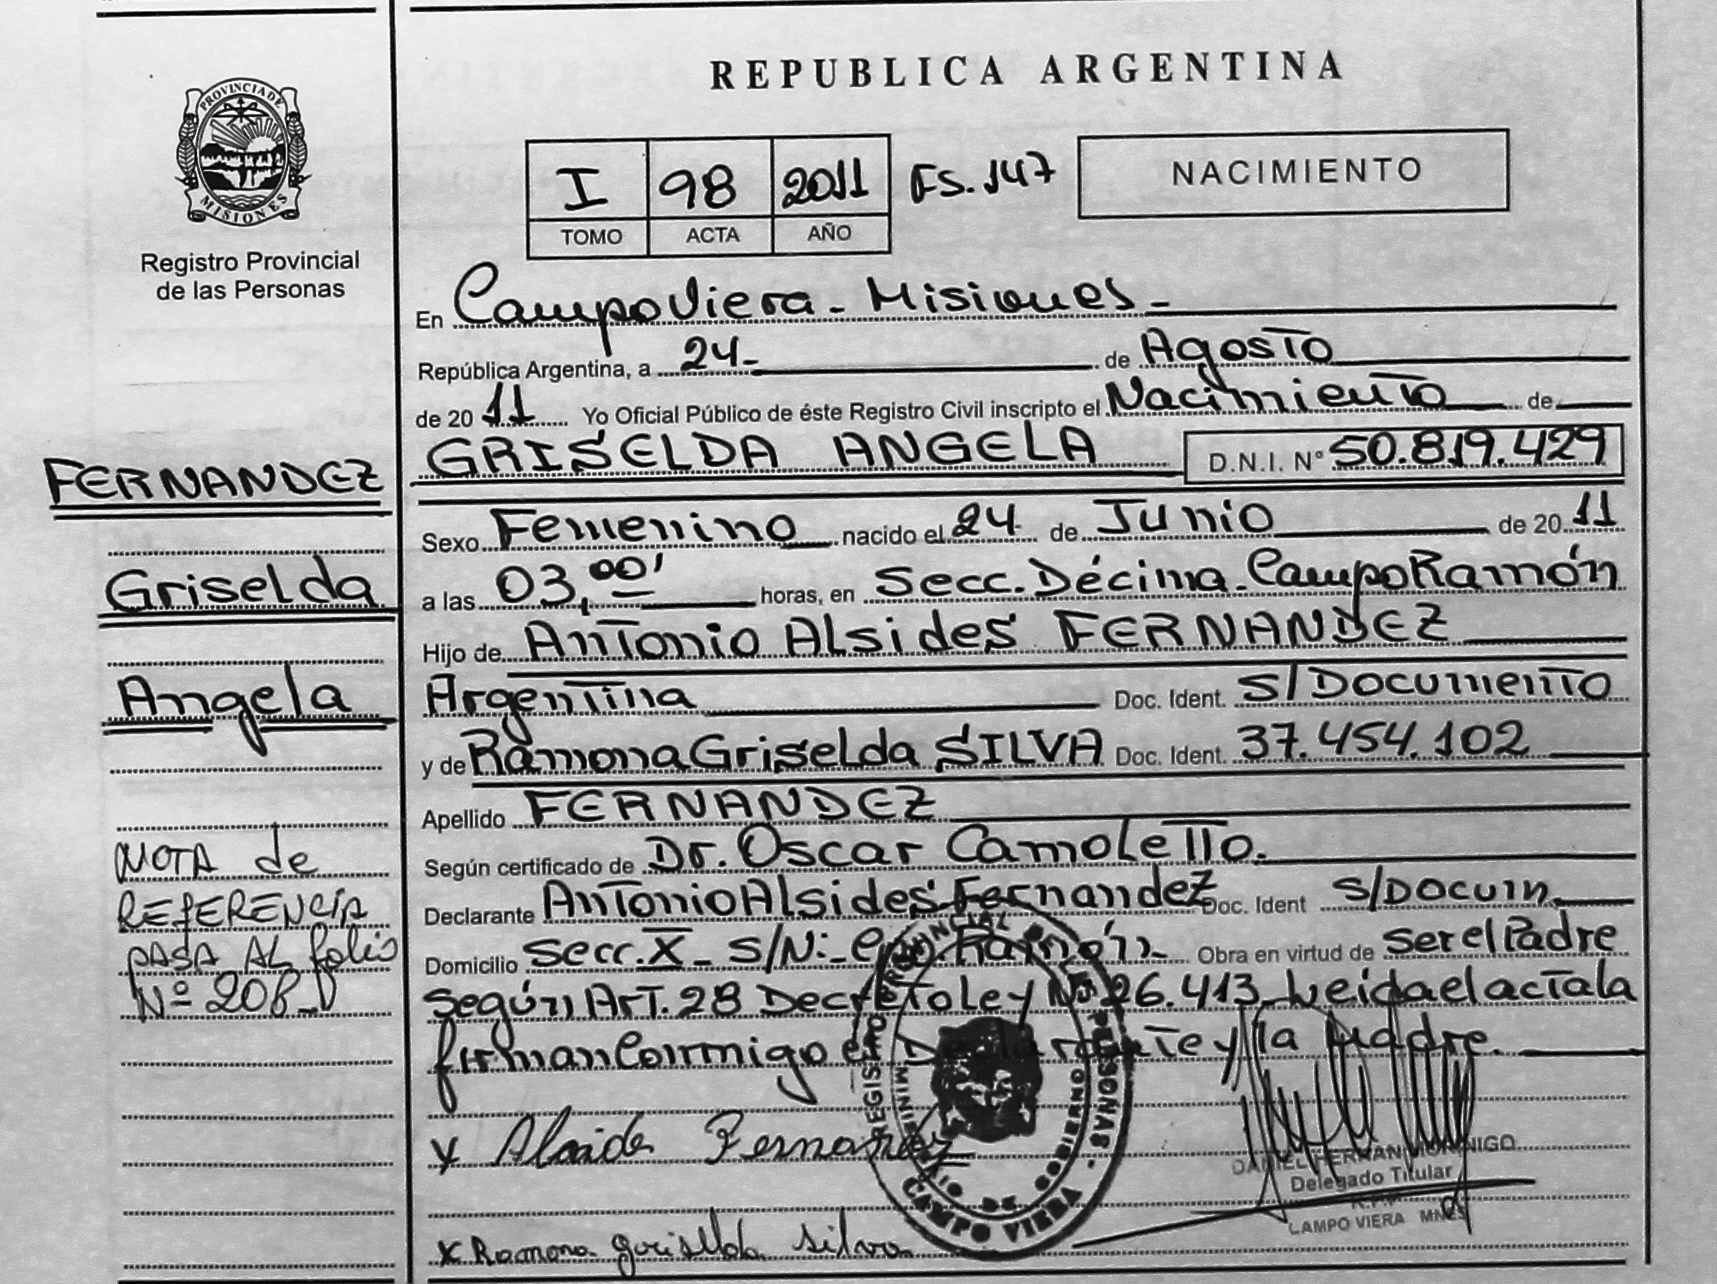 REPUBLICA ARGENTINA
PROVINCIA DE MISIONES
Registro Provincial
de las Personas
I 98 2011 FS. 147
TOMO ACTA AÑO
NACIMIENTO
En Campo Viera - Misiones -
República Argentina, a 24 - de Agosto
de 2011 Yo Oficial Público de éste Registro Civil inscripto el Nacimiento de
GRISELDA ANGELA D.N.I. N° 50.819.429
Sexo Femenino nacido el 24 de Junio de 2011
a las 03,00' horas, en Secc. Décima - Campo Ramón
Hijo de Antonio Alsides FERNANDEZ
Argentina Doc. Ident. S/Documento
y de Ramona Griselda SILVA Doc. Ident. 37.454.102
Apellido FERNANDEZ
Según certificado de Dr. Oscar Camoletto.
Declarante Antonio Alsides Fernandez Doc. Ident S/Docum.
Domicilio Secc. X - S/N: - Ramón - Obra en virtud de ser el Padre
según Art. 28 Decreto Ley Nº 26.413 - Leida el acta la
firman Conmigo el Declarante y la Madre.
FERNANDEZ
Griselda
Angela
NOTA de
REFERENCIA
PASA AL folio
Nº 208
X Alsides Fernandez
X Ramona griselda silva
REGISTRO PROVINCIAL DE LAS PERSONAS -
MINISTERIO DE GOBIERNO
CAMPO VIERA
DANIEL HERNAN MORINIGO
Delegado Titular
R.P.P.
CAMPO VIERA MNES